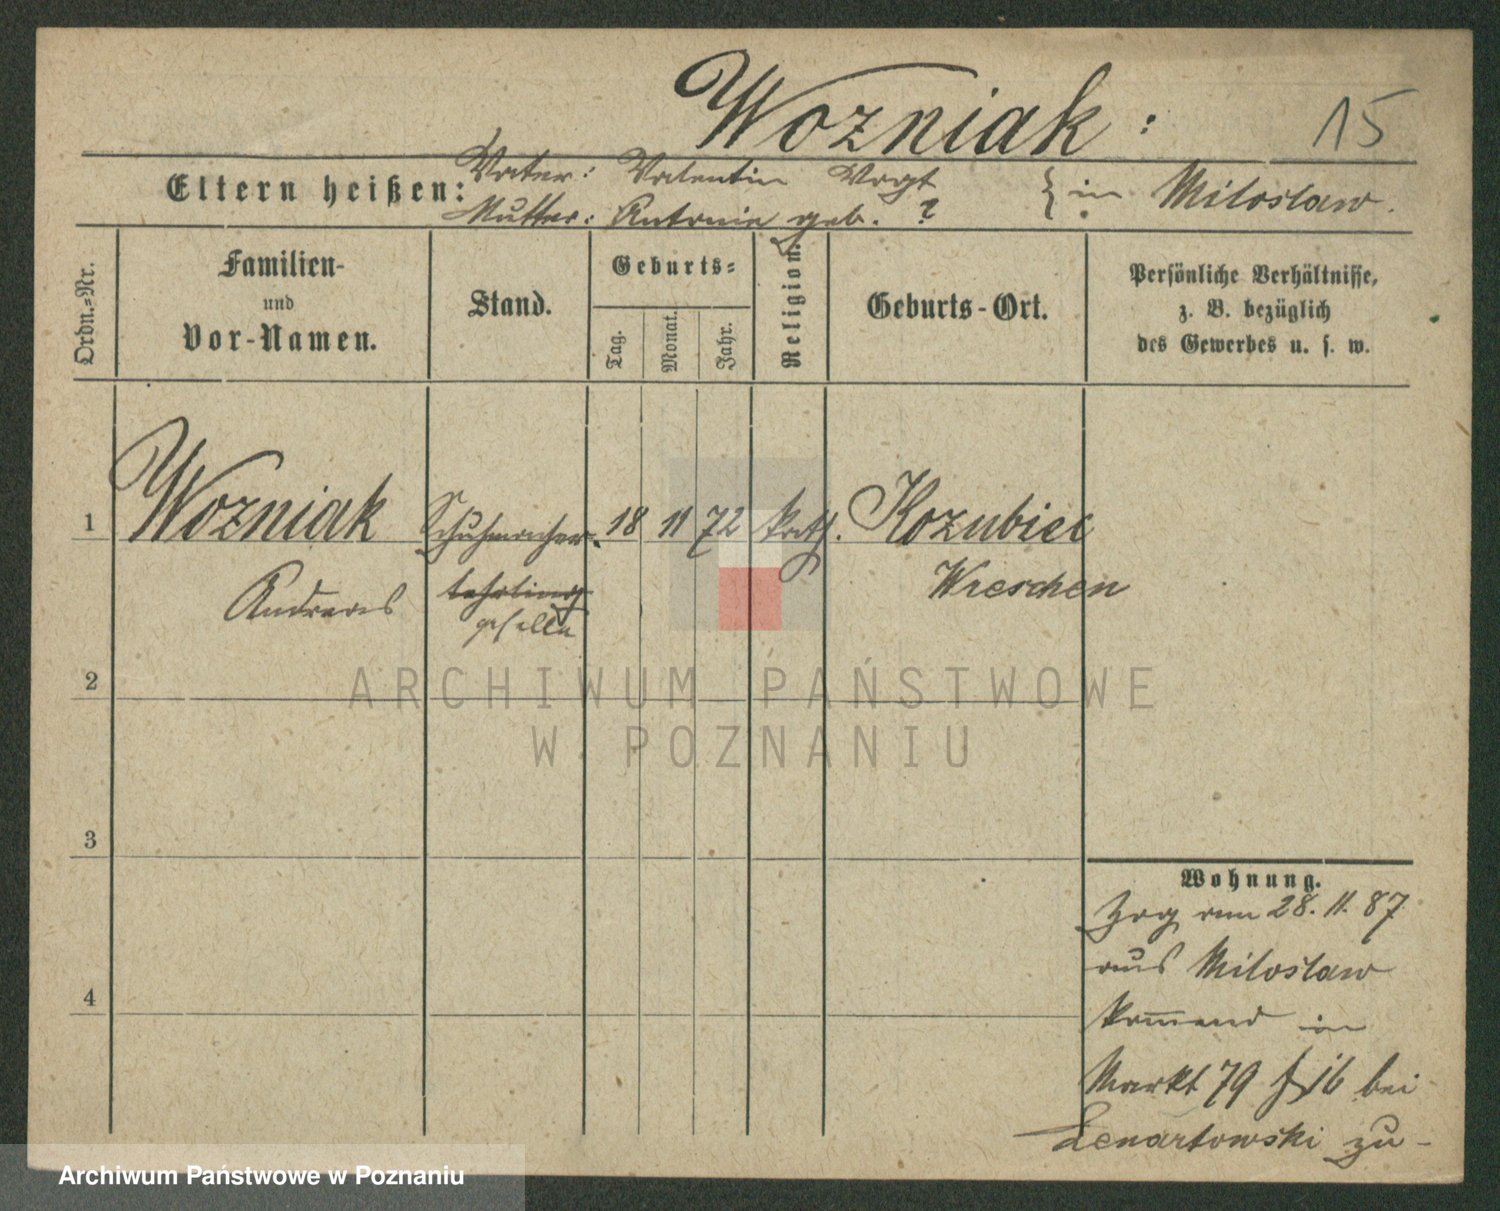 Wozniak:
15
Eltern heißen:
Vater: Valentin Vogt
Mutter: Antonie geb. ?
in Miloslaw.
Ordn.=Nr.
Familien-
und
Vor-Namen.
Stand.
Geburts=
Tag.
Monat.
Jahr.
Religion.
Geburts-Ort.
Persönliche Verhältnisse,
z. B. bezüglich
des Gewerbes u. s. w.
1 Wozniak Schuhmacher- 18 11 72 kath. Kozubiec
Andreas lehrling Wreschen
geselle
2
3
4
Wohnung.
Zog am 28. 11. 87
aus Miloslaw
kommend in
Markt 79 16 bei
Lenartowski zu-
ARCHIWUM PAŃSTWOWE
W POZNANIU
Archiwum Państwowe w Poznaniu